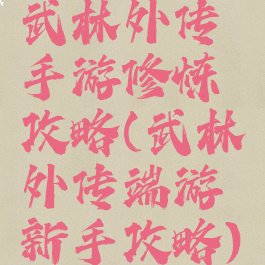 武林外传
手游修炼
攻略(武林
外传端游
新手攻略)